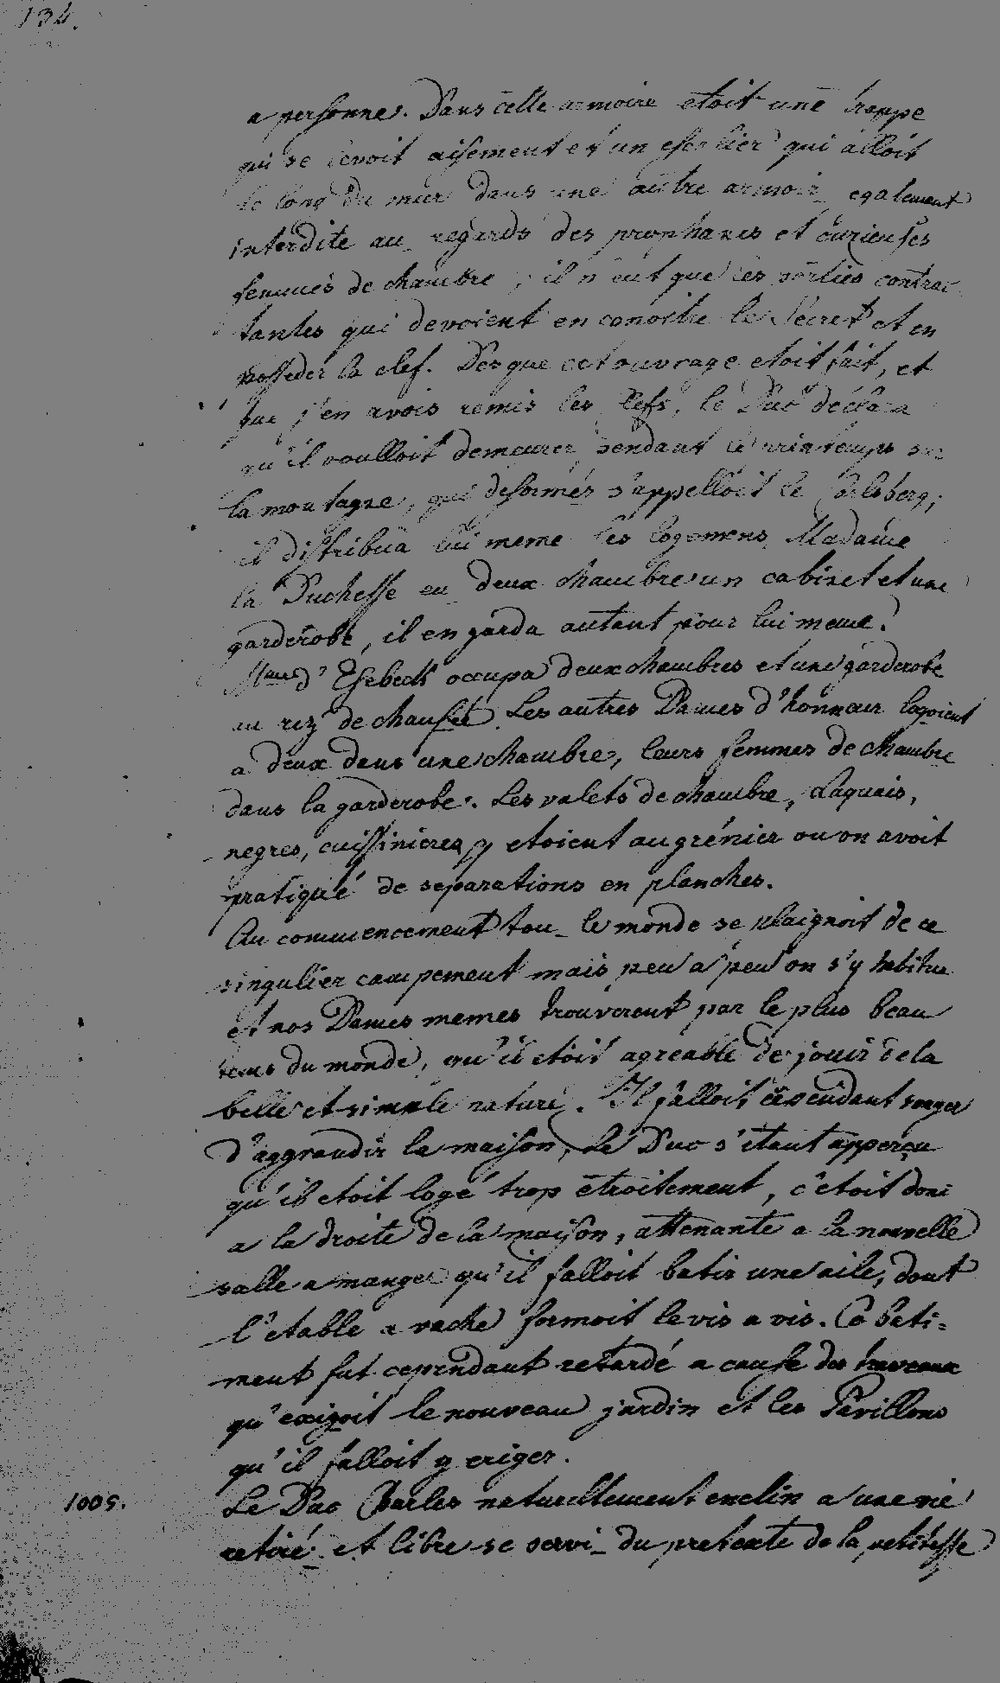 134.
a personne. Dans cette armoire etoit une trappe
qui se levoit aisement et un escalier qui alloit
le long du mur dans une autre armoire egalement
interdite au regards des prophanes et curieuses
femmes de chambre ; il n'eut que les parties contrac
tantes qui devoient en conoitre le Secret et en
posseder la clef. Des que cet ouvrage etoit fait, et
que j'en avois remis les clefs, le Duc declara
qu'il voulloit demeurer pendant le printemps sur
la montagne, qui desormés s'appelloit le Carlsberg;
il distribua lui meme les logemens, Madame
la Duchesse eu deux chambres un cabinet et une
garderobe, il en garda autant pour lui meme.
Mme d'Esebeck occupa deux chambres et une garderobe
au rez de chaussée. Les autres Dames d'honneur logoient
a deux dans une chambre, leurs femmes de chambre
dans la garderobe. Les valets de chambre, Laquais,
negres, cuissinieres y etoient au grénier ou on avoit
pratiqué de separations en planches.
Au commencement tou_ le monde se plaignoit de ce
singulier campement mais peu a peu on s'y habitue
et nos Dames memes trouverent par le plus beau
tems du monde, qu'il etoit agreable de jouir de la
belle et simple nature. Il falloit cependant songer
d'aggrandir la maison, Le Duc s'etant apperçu
qu'il etoit logé trop etroitement, c'etoit donc
a la droite de la maison, attenante a la nouvelle
salle a manger qu'il falloit batir une aile, dont
l'etable a vache formoit le vis a vis. Ce bati=
ment fut cependant retardé a cause des traveaux
qu'exigoit le nouveau jardin et les Pavillons
qu'il falloit y eriger.
1005. Le Duc Charles naturellement enclin a une vie
retiré et libre se servi_ du pretexte de la petitesse